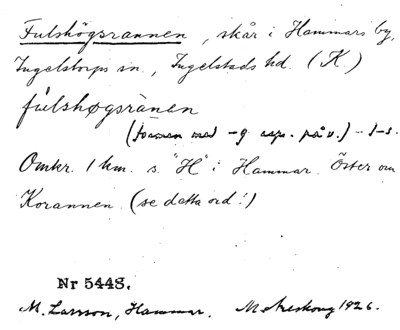 Fulshögsrannen, skär i Hammars by,
Ingelstorps sn., Ingelstads hd. (K)
fúlshøgsrànen
(toamen med -g asp. på v.) -1-s.
Omkr. 1 km. s. "H" i Hammar. Öster om
Korannen. (se detta ord!)
Nr 5448.
M. Larsson, Hammar. 1926.